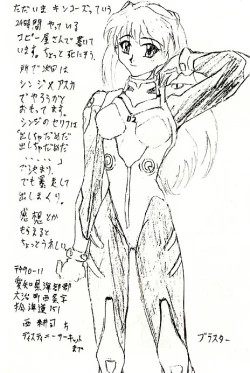 ただいま キンコーズっていう
24時間 やっている
コピー屋さんで書いて
います。ちょっと死にそう。
所で次回は
シンジ×アスカ
でやろうかな
おもてます。
シンジのセリフは
出しちゃだめだ
出しちゃだめだ
・・・・・」
で決まり。
でも暴走して
出しまくり。
感想とか
もらえると
ちょっとうれしい。
〒490-11
愛知県海部郡
大治町西條字
松海道151
西 耕司 方
ディスティニーサーキット
まで
ブラスター